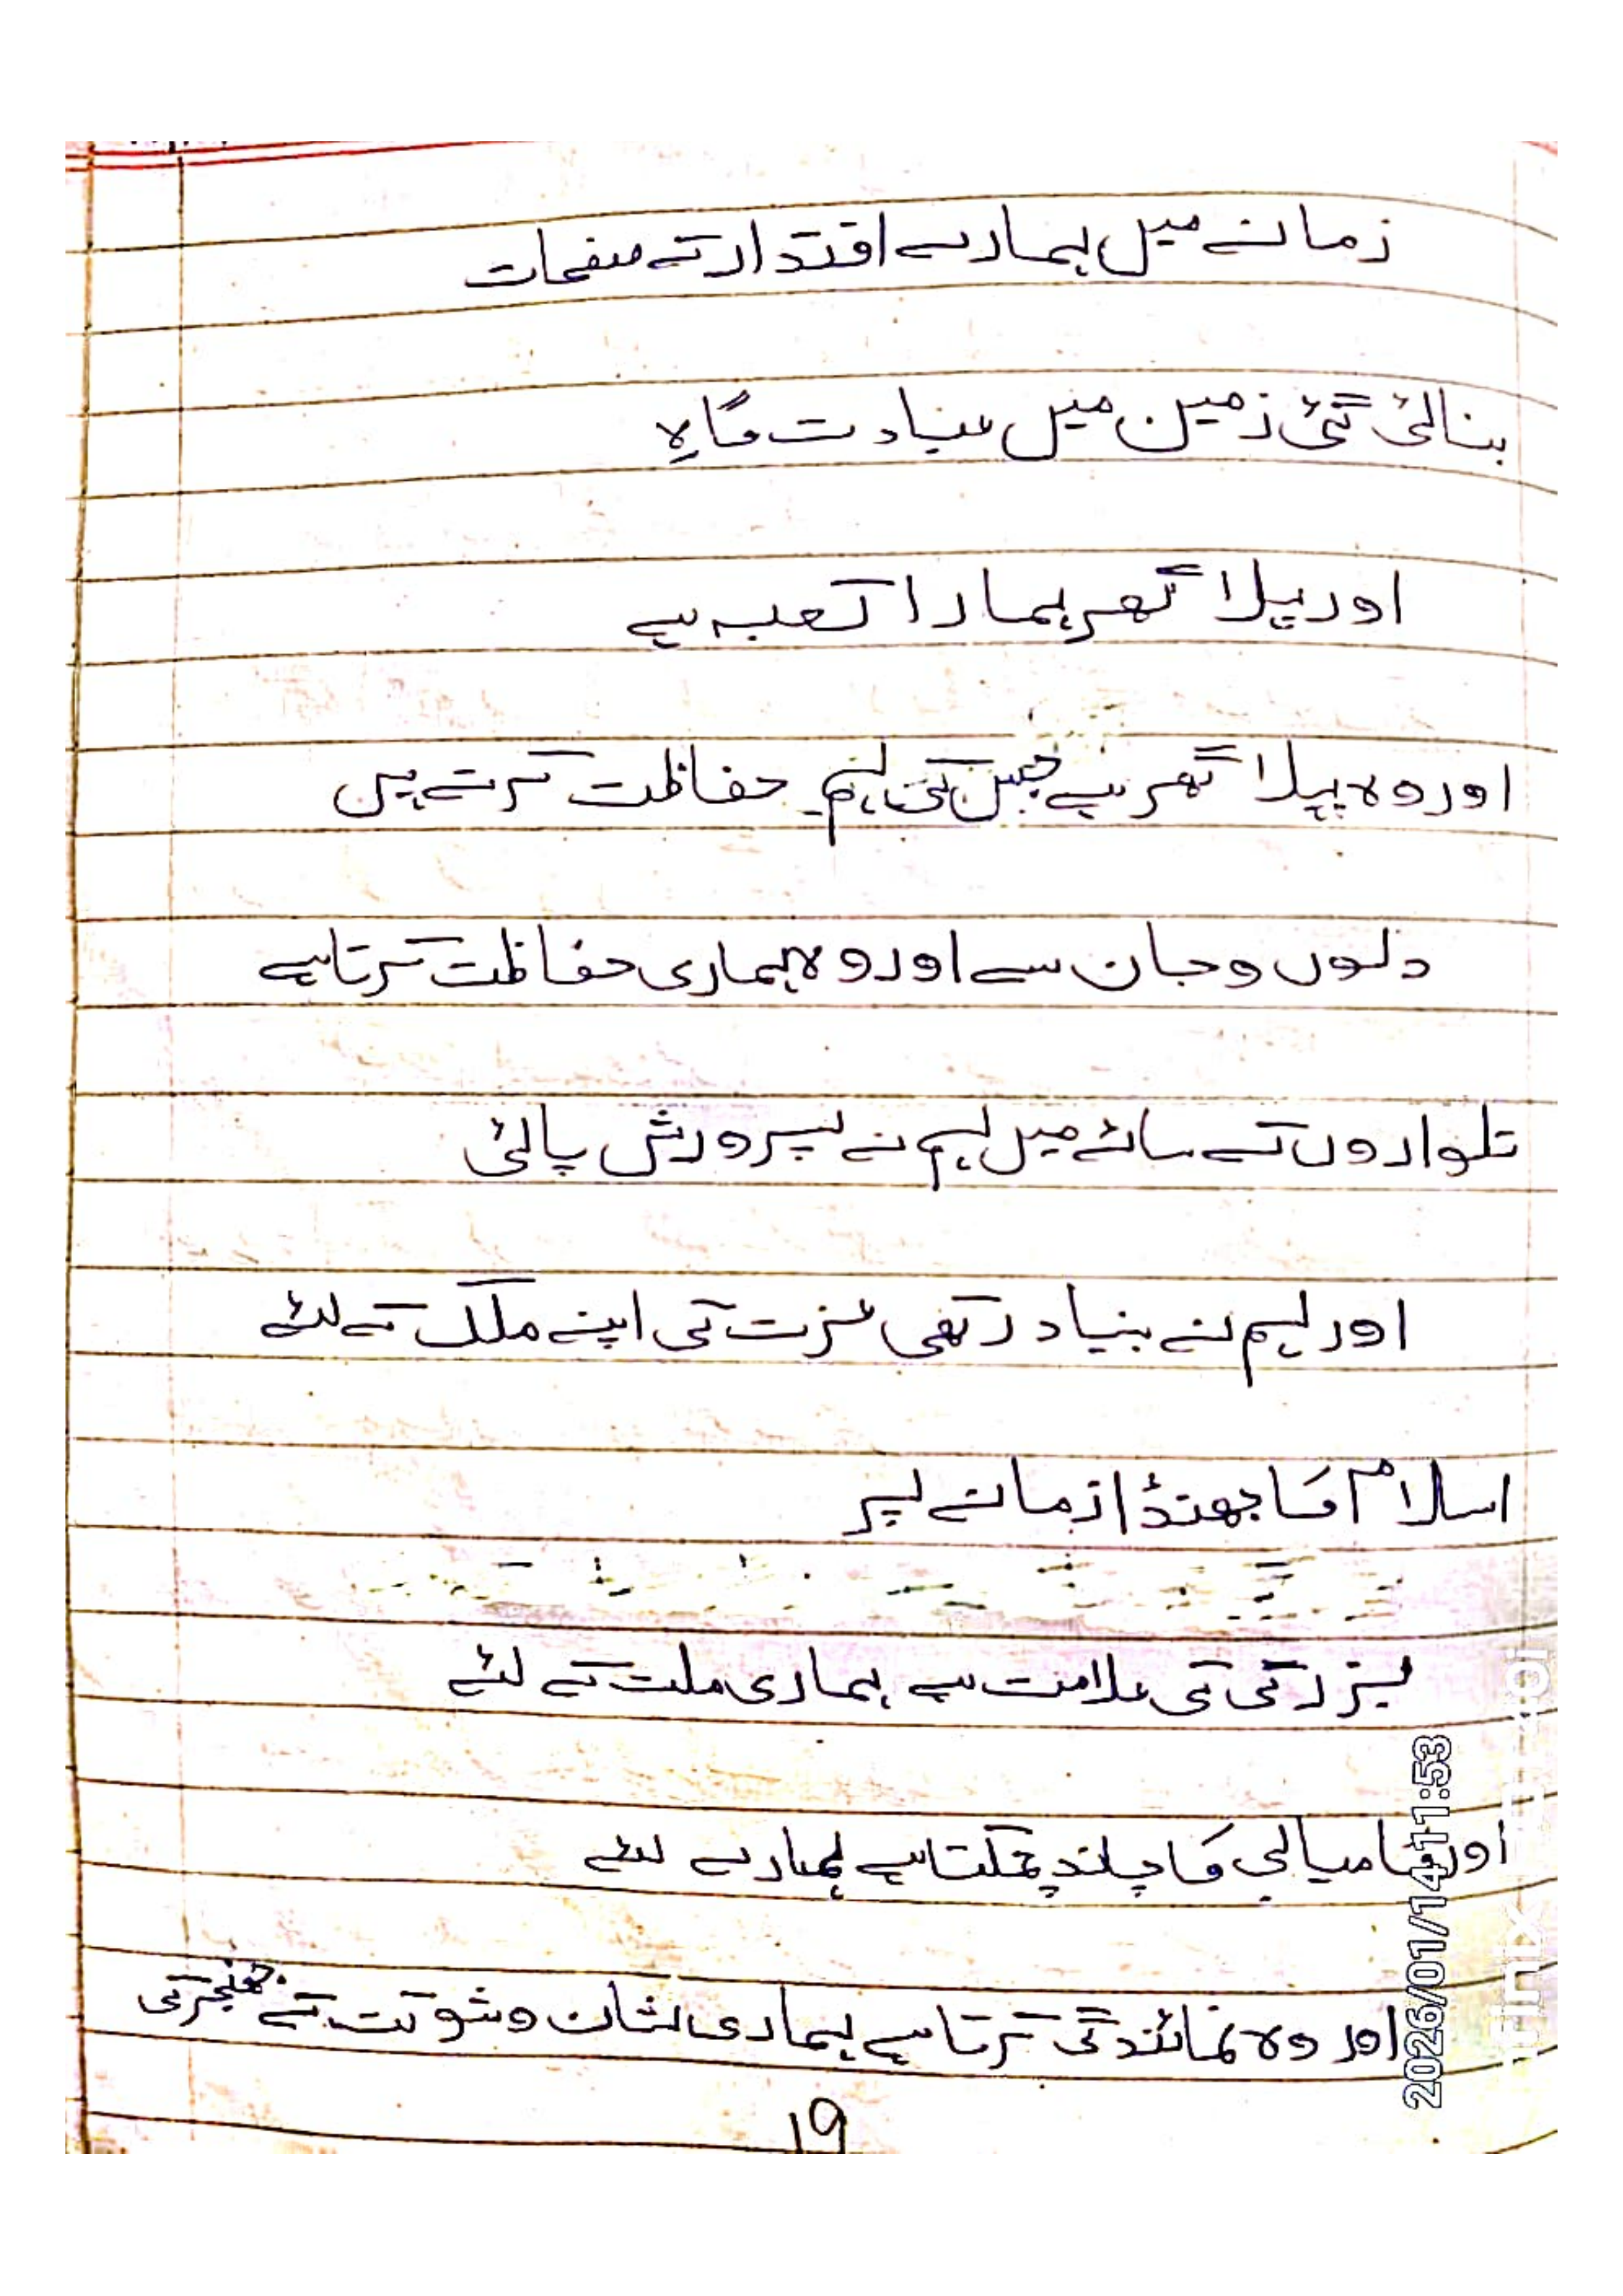 زمانے میں ہمارے اقتدار کے صفحات
بنائی گئی زمین میں عبادت گاہ
اور پہلا گھر ہمارا کعبہ ہے
اور وہ پہلا گھر ہے جس کی ہم حفاظت کرتے ہیں
دلوں و جان سے اور وہ ہماری حفاظت کرتا ہے
تلواروں کے سائے میں ہم نے پرورش پائی
اور ہم نے بنیاد رکھی عزت کی اپنے ملک کے لئے
اسلام کا جھنڈا زمانے پر
بزرگی کی علامت ہے ہماری ملت کے لئے
اور کامیابی کا چاند چمکتا ہے ہمارے لئے
اور وہ نمائندگی کرتا ہے ہماری شان و شوکت کے خنجر کی
19
2026/01/14 11:53